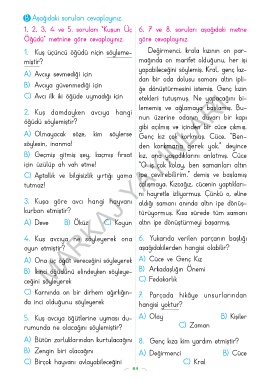 Aşağıdaki soruları cevaplayınız.
1, 2, 3, 4 ve 5. soruları "Kuşun Üç
Öğüdü" metnine göre cevaplayınız.
1. Kuş üçüncü öğüdü niçin söyleme-
miştir?
A) Avcıyı sevmediği için
B) Avcıya güvenmediği için
C) Avcı ilk iki öğüde uymadığı için
2. Kuş damdayken avcıya hangi
öğüdü söylemiştir?
A) Olmayacak söze, kim söylerse
söylesin, inanma!
B) Geçmiş gitmiş şey, kaçmış fırsat
için üzülüp ah vah etme!
C) Aptallık ve bilgisizlik yırtığı yama
tutmaz!
3. Kuşa göre avcı hangi hayvanı
kurban etmiştir?
A) Deve B) Öküz C) Koyun
4. Kuş avcıya ne söyleyerek ona
oyun etmiştir?
A) Ona üç öğüt vereceğini söyleyerek
B) İkinci öğüdünü elindeyken söyleye-
ceğini söyleyerek
C) Karnında on bir dirhem ağırlığın-
da inci olduğunu söyleyerek
5. Kuş avcıya öğütlerine uyması du-
rumunda ne olacağını söylemiştir?
A) Bütün zorluklarından kurtulacağını
B) Zengin biri olacağını
C) Birçok hayvanı avlayabileceğini
6, 7 ve 8. soruları aşağıdaki metne
göre cevaplayınız.
Değirmenci, krala kızının on par-
mağında on marifet olduğunu, her işi
yapabileceğini söylemiş. Kral, genç kız-
dan bir oda dolusu samanı altın ipli-
ğe dönüştürmesini istemiş. Genç kızın
etekleri tutuşmuş. Ne yapacağını bi-
lememiş ve ağlamaya başlamış. Bu-
nun üzerine odanın duvarı bir kapı
gibi açılmış ve içinden bir cüce çıkmış.
Genç kız çok korkmuş. Cüce, "Ben-
den korkmana gerek yok." deyince
kız, ona yaşadıklarını anlatmış. Cüce
"Güzel, çok kolay, ben samanları altın
ipe çevirebilirim." demiş ve başlamış
çalışmaya. Kızcağız, cücenin yaptıkları-
nı hayretle izliyormuş. Çünkü o, eline
aldığı samanı anında altın ipe dönüş-
türüyormuş. Kısa sürede tüm samanı
altın ipe dönüştürmeyi başarmış.
6. Yukarıda verilen parçanın başlığı
aşağıdakilerden hangisi olabilir?
A) Cüce ve Genç Kız
B) Arkadaşlığın Önemi
C) Fedakarlık
7. Parçada hikâye unsurlarından
hangisi yoktur?
A) Olay B) Kişiler
C) Zaman
8. Genç kıza kim yardım etmiştir?
A) Değirmenci B) Cüce
C) Kral